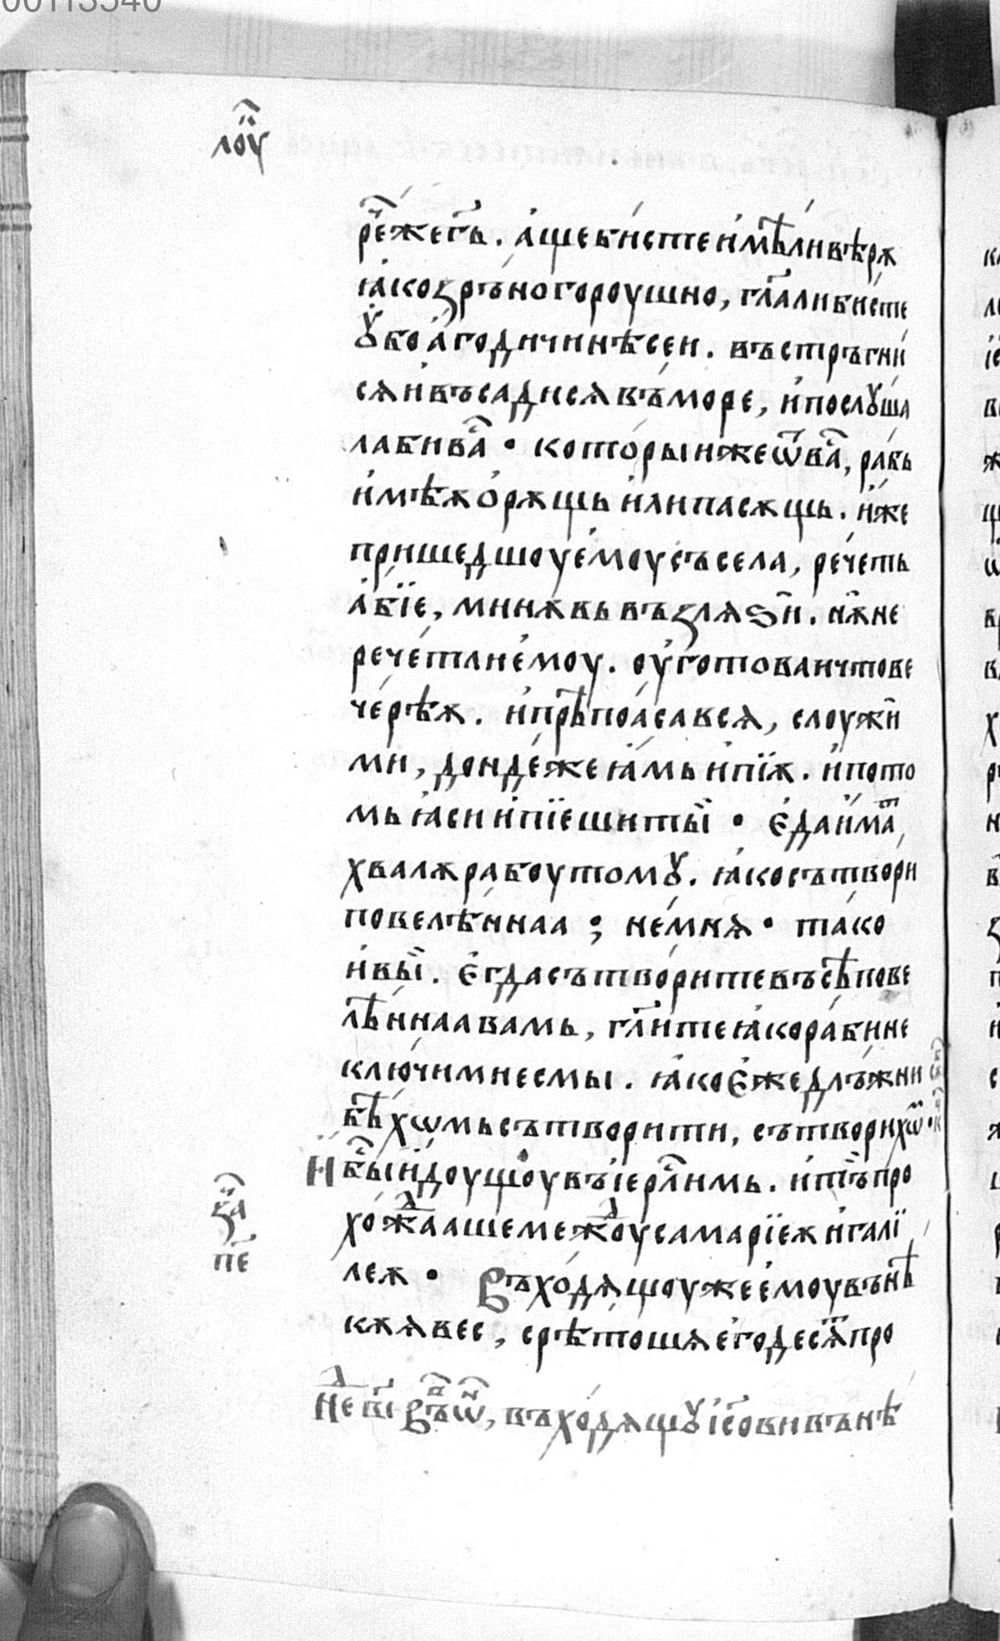 00113540
лоу҃
ре҃жегь. а́щебистеи҆мѣливѣрѫ
ꙗ҆козръногороушно, гл҃алибисте
ꙋ҆боа҆годичинѣсеи. въстръгни
сѧи҆въсадисѧвъморе, и҆послꙋша
лабива҃ • которыижеѿва҃, рабь
и҆мѣѫо҆рѫщь и҆липасѫщь. и҆же
пришедшоуе҆моусъсела, речеть
а҆бїе, минѫвьвъзлѧѕи҃. нѫ҃не
речетлие҆моу. оу҆готоваичтове
черѣѫ. и҆прѣпоꙗсавсѧ, слоужи҃
ми, дондежеꙗ҆мьи҆пїѫ. и҆пото
мьꙗ҆сии҆пїешиты̀ • є҆даи҆ма҃т
хвалѫрабоутомꙋ. ꙗ҆косътвори
повелѣннаа ; немнѧ • тако
и҆вы̀. є҆гдасътворитевъсѣ҃пове
лѣннаавамь, гл҃итеꙗ҆корабине
ключимиесмы. ꙗ҆коє҆жедлъжни
бѣхѡмьсътворити, сътворихѡ҃м •
И҆бы҃и҆доущоувъі҆ерл҃имь. и҆тъ҃про
хожⷣаашемежⷣоусамарїеѫи҆галї
леѫ • Въходѧщоужее҆моувънѣ҃
кѫѧвес, срѣтошѧе҆годесѧ҃тпро
за҃ч
пе҃
неⷣ ві҃ Въѡ҃н, въходѧщꙋі҆с҃овивънѣ